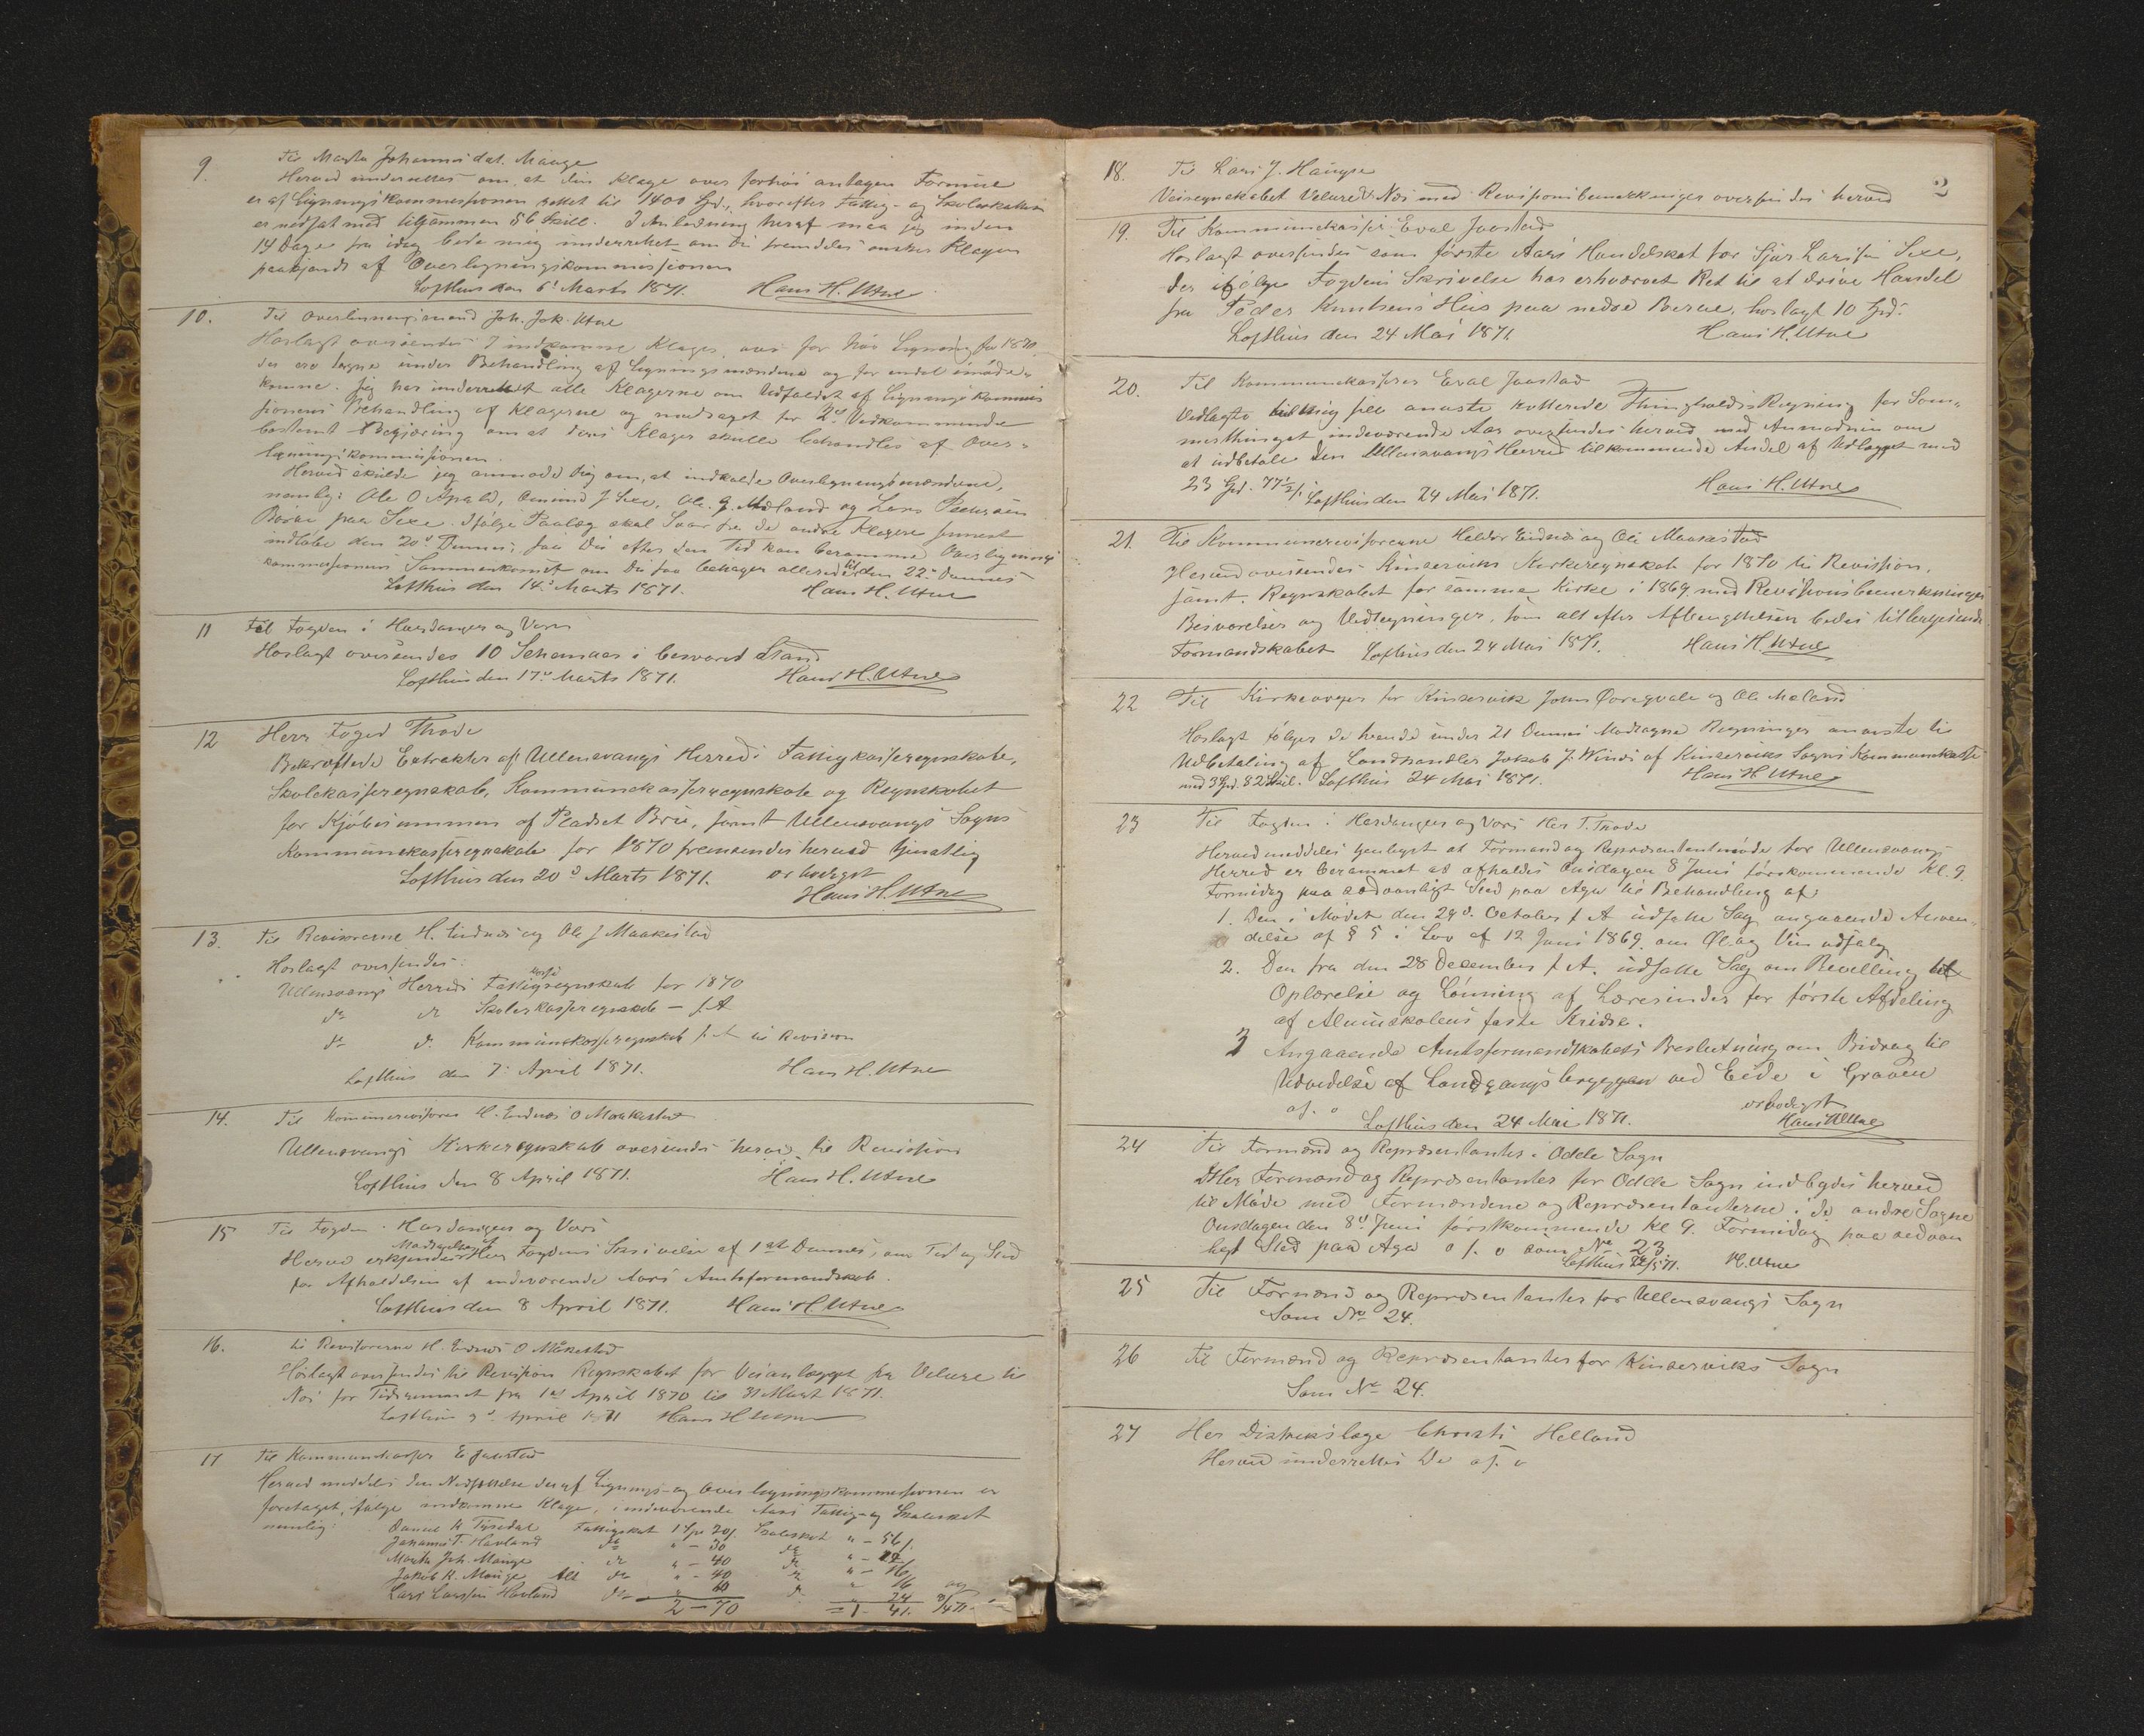 9.
Til Marta Johannesdat. Mauge
Herved underrettes om, at din Klage over forhøi antagen Formue
er af Ligningskommissionen sattet til 1400 Spd., hvorefter Fattig- og Skoleskatten
er nedsat med tilsammen 56 Skill. I Anledning heraf maa jeg inden
14 Dage fra idag bede mig underrettet om Du fremdeles ønsker Klagen
paakjendt af Overligningskommissionen
Lofthus den 6t Marts 1871. Hans H. Utne
10.
Til Overligningsmand Joh. Jak. Utne
Hoslagt oversendes 7 indkomne Klager over for høi Ligning for 1870
der ere tagne under Behandling af Ligningsmændene og for endel imøde-
komne. Jeg har underrettet alle Klagerne om Udfaldet af Ligningskommis
sionens Behandling af Klagerne og modtaget for Vedkommende
bestemt Begjæring om at deres Klager skulle behandles af Over-
ligningskommissionen.
Herved skulde jeg anmode Dig om, at indkalde Overligningsmændene,
nemlig: Ole O Apald, Omund J Sexe, Ole G. Mæland og Lars Pedersen
Børve paa Sexe. Ifølge Paalæg skal Svar fra de andre Klagere senest
indløbe den 20d Dennes, saa Du efter den Tid kan beramme Overlignings
kommissionens Sammenkomst om Du saa behager allerede til den 22d Dennes
Lofthus den 14d Marts 1871. Hans H. Utne
11
Til Fogden i Hardanger og Voss
Hoslagt oversendes 10 Schemaer i besvaret Stand
Lofthus den 17d Marts 1871. Hans H. Utne
12
Herr Foged Thode
Bekræftede Extrakter af Ullensvangs Herreds Fattigkasseregnskab,
Skolekasseregnskab, Kommunekasseregnskab og Regnskabet
for Kjøbesummen af Pladset Brie, samt Ullensvangs Sogns
Kommunekasseregnskab for 1870 fremsendes herved tjenstlig
Lofthus den 20d Marts 1871. ærbødigst
Hans H. Utne
13.
Til Revisorerne H. Eidnes og Ole J Maakestad
Hoslagt oversendes:
Ullensvangs Herreds Fattigkasseregnskab for 1870
do do Skolekasseregnskab – f. A
do do Kommunekasseregnskab f. A til Revision
Lofthus den 7d April 1871. Hans H. Utne
14.
Til Kommunerevisorer H. Eidnes O Maakestad
Ullensvangs Kirkeregnskab oversendes herved til Revision
Lofthus den 8 April 1871. Hans H. Utne
15
Til Fogden i Hardanger og Voss
Herved erkjendes Modtagelsen af Herr Fogdens Skrivelse af 1st Dennes, om Tid og Sted
for Afholdelsen af indeværende Aars Amtsformandskab.
Lofthus den 8 April 1871. Hans H. Utne
16.
Til Revisorerne H. Eidnes O Måkestad
Hoslagt oversendes til Revision Regnskabet for Veianlægget fra Velure til
Næs for Tidsrummet fra 1st April 1870 til 31 Marst 1871.
Lofthus 9d April 1871 Hans H Utne
17
Til Kommunekasser E Jaastad
Herved meddeles den Nedsættelse der af Lignings- og Overligningskommissionen er
foretaget, ifølge indkomne Klager, i indeværende Aars Fattig- og Skoleskat
nemlig: Daniel K Tyssedal Fattigskat 1 Spd 20/. Skoleskat " – 56/.
Johannes T. Havland do " – 30 do " – 12
Marita Joh. Mauge do " – 40 do " – 16
Jakob K. Mauge Alt do " – 40 do " – 16
Lars Larssen Havland do " 60 do " 24
2 – 70 = 1. 41.
2
18.
Til Lars J. Haugse
Veiregnskabet Velure & Næs med Revisionsbemærkninger oversendes herved
19.
Til Kommunekasser Eval Jaastad
Hoslagt oversendes som første Aars Handelskat for Sjur Larssen Sexe,
der ifølge Fogdens Skrivelse har erhværvet Ret til at drive Handel
fra Peder Knutsens Hus paa nedre Børve, hoslagt 10 Spd.
Lofthus den 24 Mai 1871. Hans H. Utne
20.
Til Kommunekasserer Eval Jaastad
Vedlagte til mig anviste kvitterede Thingholds Regning for Som-
merthinget indeværende Aar oversendes herved med Anmodnin om
at udbetale den Ullensvangs Herred tilkommende Andel af Udlægget med
23 Spd. 77½/. Lofthus den 24 Mai 1871. Hans H. Utne
21.
Til Kommunerevisorerne Heldor Eidnes og Ole Maakestad
Herved oversendes Kinserviks Kirkeregnskab for 1870 til Revission,
samt Regnskabet for samme Kirke i 1869, med Revisionsbemerkninger
Besvarelser og Vedtegninger, som alt efter Afbenyttelsen bedes tilbagesendt
Formandskabet Lofthus den 24 Mai 1871. Hans H. Utne
22
Til Kirkeværger for Kinservik Johns Qvæstvale og Ole Mæland
Hoslagt følger de herved under 21 Dennes Modtagne Regninger anviste til
Udbetaling af Landhandler Jakob J. Winæs af Kinserviks Sogns Kommunekasse
med 3 Spd. 82 Skil. Lofthus 24 Mai 1871. Hans H Utne
23
Til Fogden i Hardanger og Voss Her T. Thode
Herved meddeles tjenligst at Formand og Repræsentantmøde for Ullensvangs
Herred er berammet at afholdes Onsdagen 8 Juni førstkommende Kl. 9.
Formidag paa sædvanligt Sted paa Aga til Behandling af:
1. Den i Mødet den 29d October f A udsatte Sag angaaende Anven-
delse af § 5 i Lov af 12 Juni 1869. om Øl og Vin udsalg
2. Den fra den 28 December f A. udsatte Sag om Bevilling til
Oplærelse og Lønning af Lærerinder for første Afdeling
af Almueskolens faste Kredse.
3 Angaaende Amtsformandskabets Beslutning om Bidrag til
Udvidelse af Landgangsbryggen ved Eide i Graven
o. s. v ærbødigst
Lofthus den 24 Mai 1871. Hans H Utne
24
Til Formænd og Repræsentanter i Odde Sogn
Her Formænd og Repræsentanter for Odde Sogn indbydes herved
til Møde med Formændene og Repræsentanterne i de andre Sogne
Onsdagen den 8d Juni førstkommende kl 9. Formidag paa sedvan
ligt Sted paa Aga o s. v som No 23.
Lofthus 24/5 71. H. Utne
25
Til Formænd og Repræsentanter for Ullensvangs Sogn
Som No 24.
26
Til Formænd og Repræsentanter for Kinserviks Sogn
Som No 24.
27
Her Distriktslæge Christi Helland
Herved underrettes De o s. v